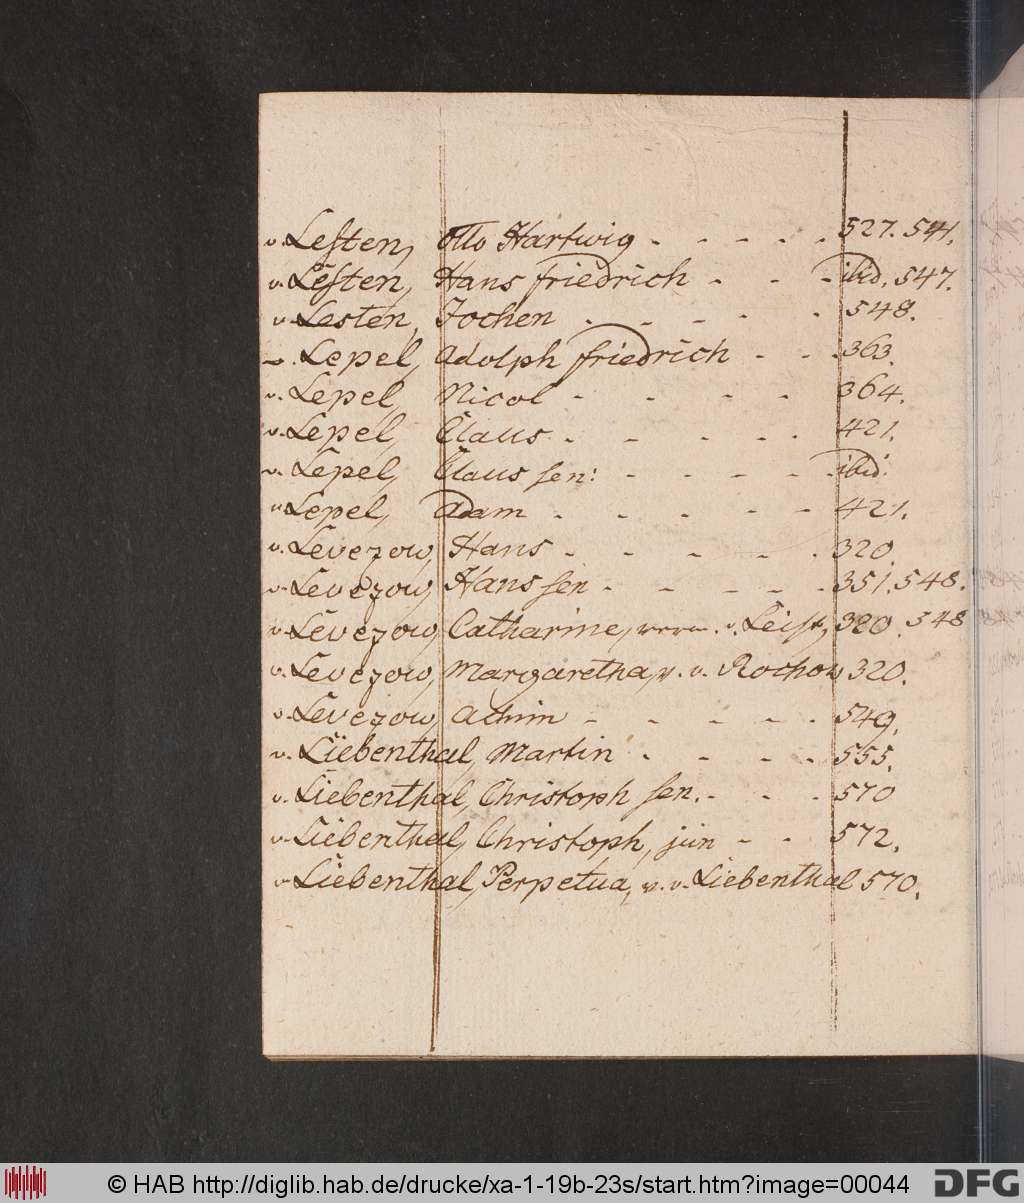 v. Lesten, Otto Hartwig - - - - - 527. 541.
v. Lesten, Hans Friedrich - - - ibid. 547.
v. Lesten, Jochen - - - - - 548.
v. Lepel, Adolph Friedrich - - - 363.
v. Lepel, Nicol - - - - 364.
v. Lepel, Claus - - - - - 421.
v. Lepel, Claus sen: - - - - - ibid.
v. Lepel, Adam - - - - - 421.
v. Levezow, Hans - - - - - 320.
v. Levezow, Hans sen - - - - - 351. 548.
v. Levezow, Catharine, verm. v. Leist, 320. 348
v. Levezow, Margaretha, v. v. Rochow 320.
v. Levezow, Achim - - - - - 549.
v. Liebenthal, Martin - - - - 555.
v. Liebenthal, Christoph sen. - - - 570
v. Liebenthal, Christoph, jun - - 572.
v. Liebenthal, Perpetua, v. v. Liebenthal 570.
© HAB http://diglib.hab.de/drucke/xa-1-19b-23s/start.htm?image=00044
DFG